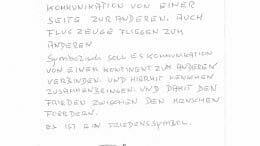 KOMMUNIKATION VON EINER
SEITE ZUR ANDEREN. AUCH
FLUGZEUGE FLIEGEN ZUM
ANDEREN
Symbolisch SOLL ES KOMMUNIKATION
VON EINER KONTINENT ZUM ANDEREN
VERBINDEN. UND HIERMIT MENSCHEN
ZUSAMMENBRINGEN. UND DAMIT DEN
FRIEDEN ZWISCHEN DEN MENSCHEN
FOERDERN.
ES IST EIN FRIEDENSSYMBOL.